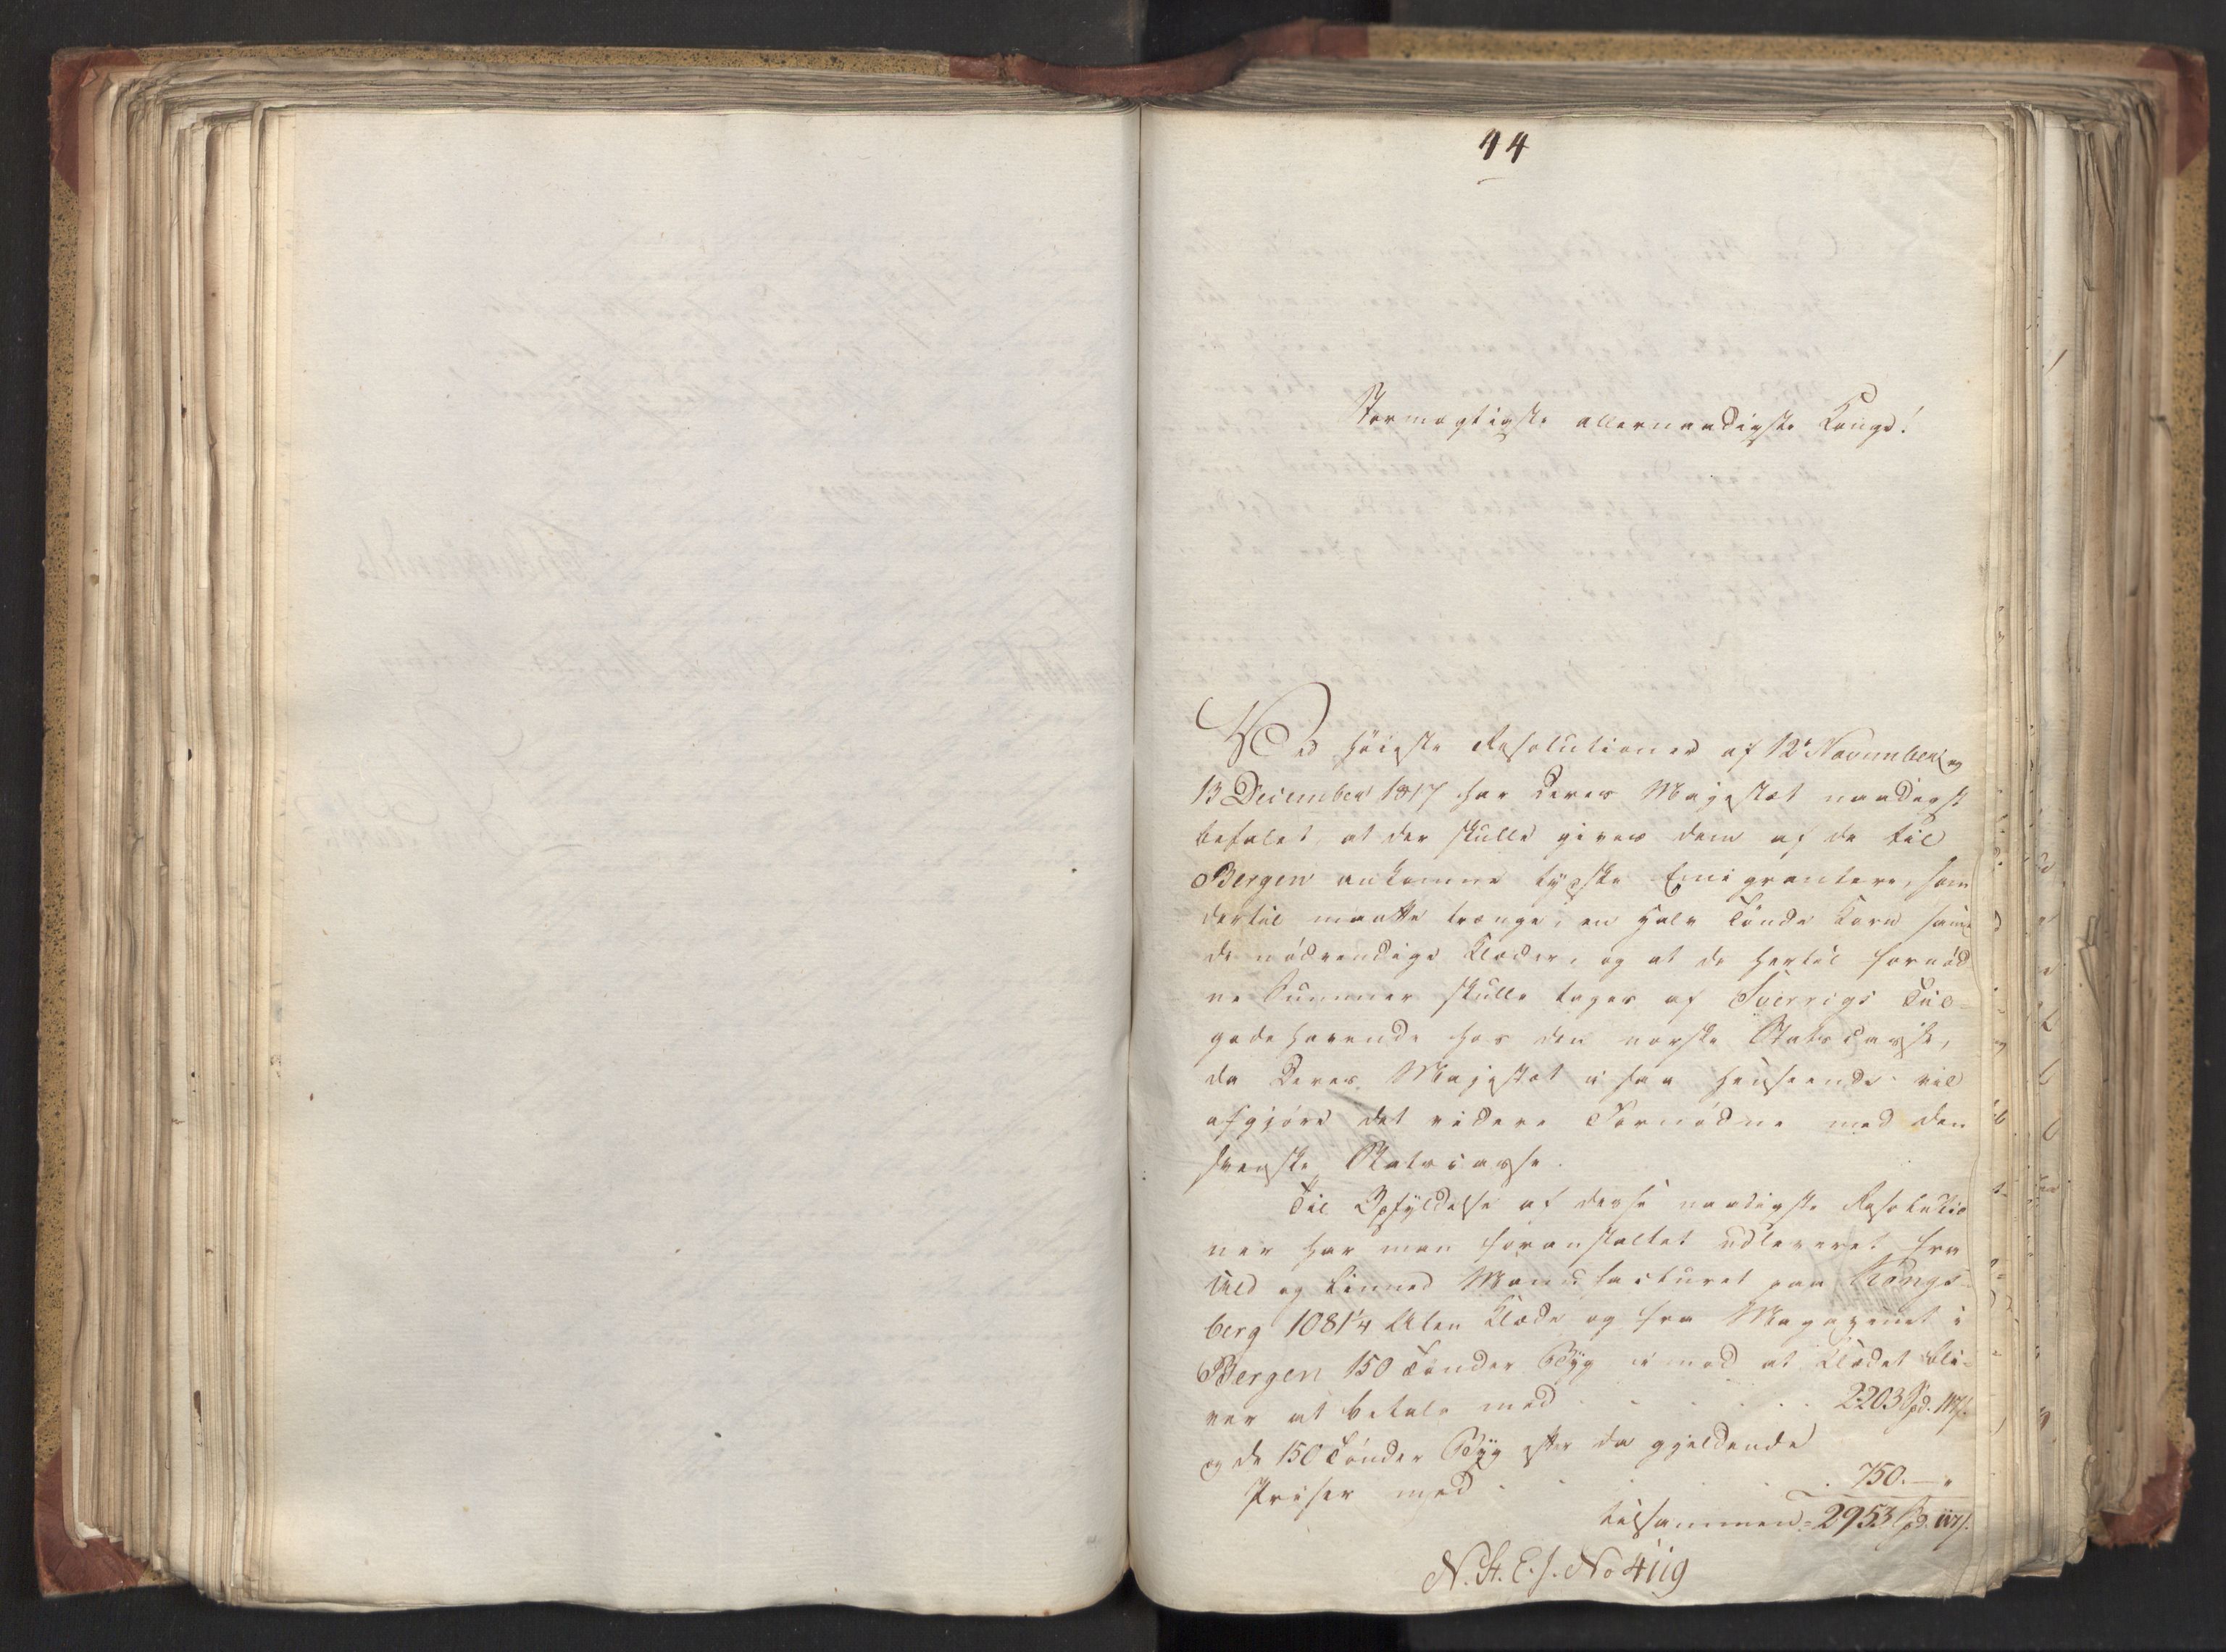 14
Stormægtigste allernaadigste Konge!
Ved höieste Resolutioner af 12te November og
13 December 1817 har Deres Majestæt naadigst
befalet, at der skulle gives dem af de til
Bergen ankomne tydske Emigrantere, som
dertil maatte trænge, en halv Tönde Korn samt
de nödvendige Klæder, og at de hertil fornöd
ne Summer skulle tages af Sverrigs Til-
godehavende hos den norske Statscasse,
da Deres Majestæt i saa Henseende vil
afgjöre det videre Fornödne med den
svenske Statscasse.
Til Opfyldelse af disse naadigste Resolutio
ner har man foranstaltet udleveret fra
Uld og Linned Manufacturet paa Kongs-
berg 1081 1/4 Alen Klæde og fra Magazinet i
Bergen 150 Tönder Byg med at Klædet bli-
ver at betale med . . . . . . 2203 Spd. 117 s.
og de 150 Tönder Byg efter da gjeldende
Priser med . . . . 750. — "
tilsammen = 2953 Spd. 117 s.
N. St. E. J. No 4119